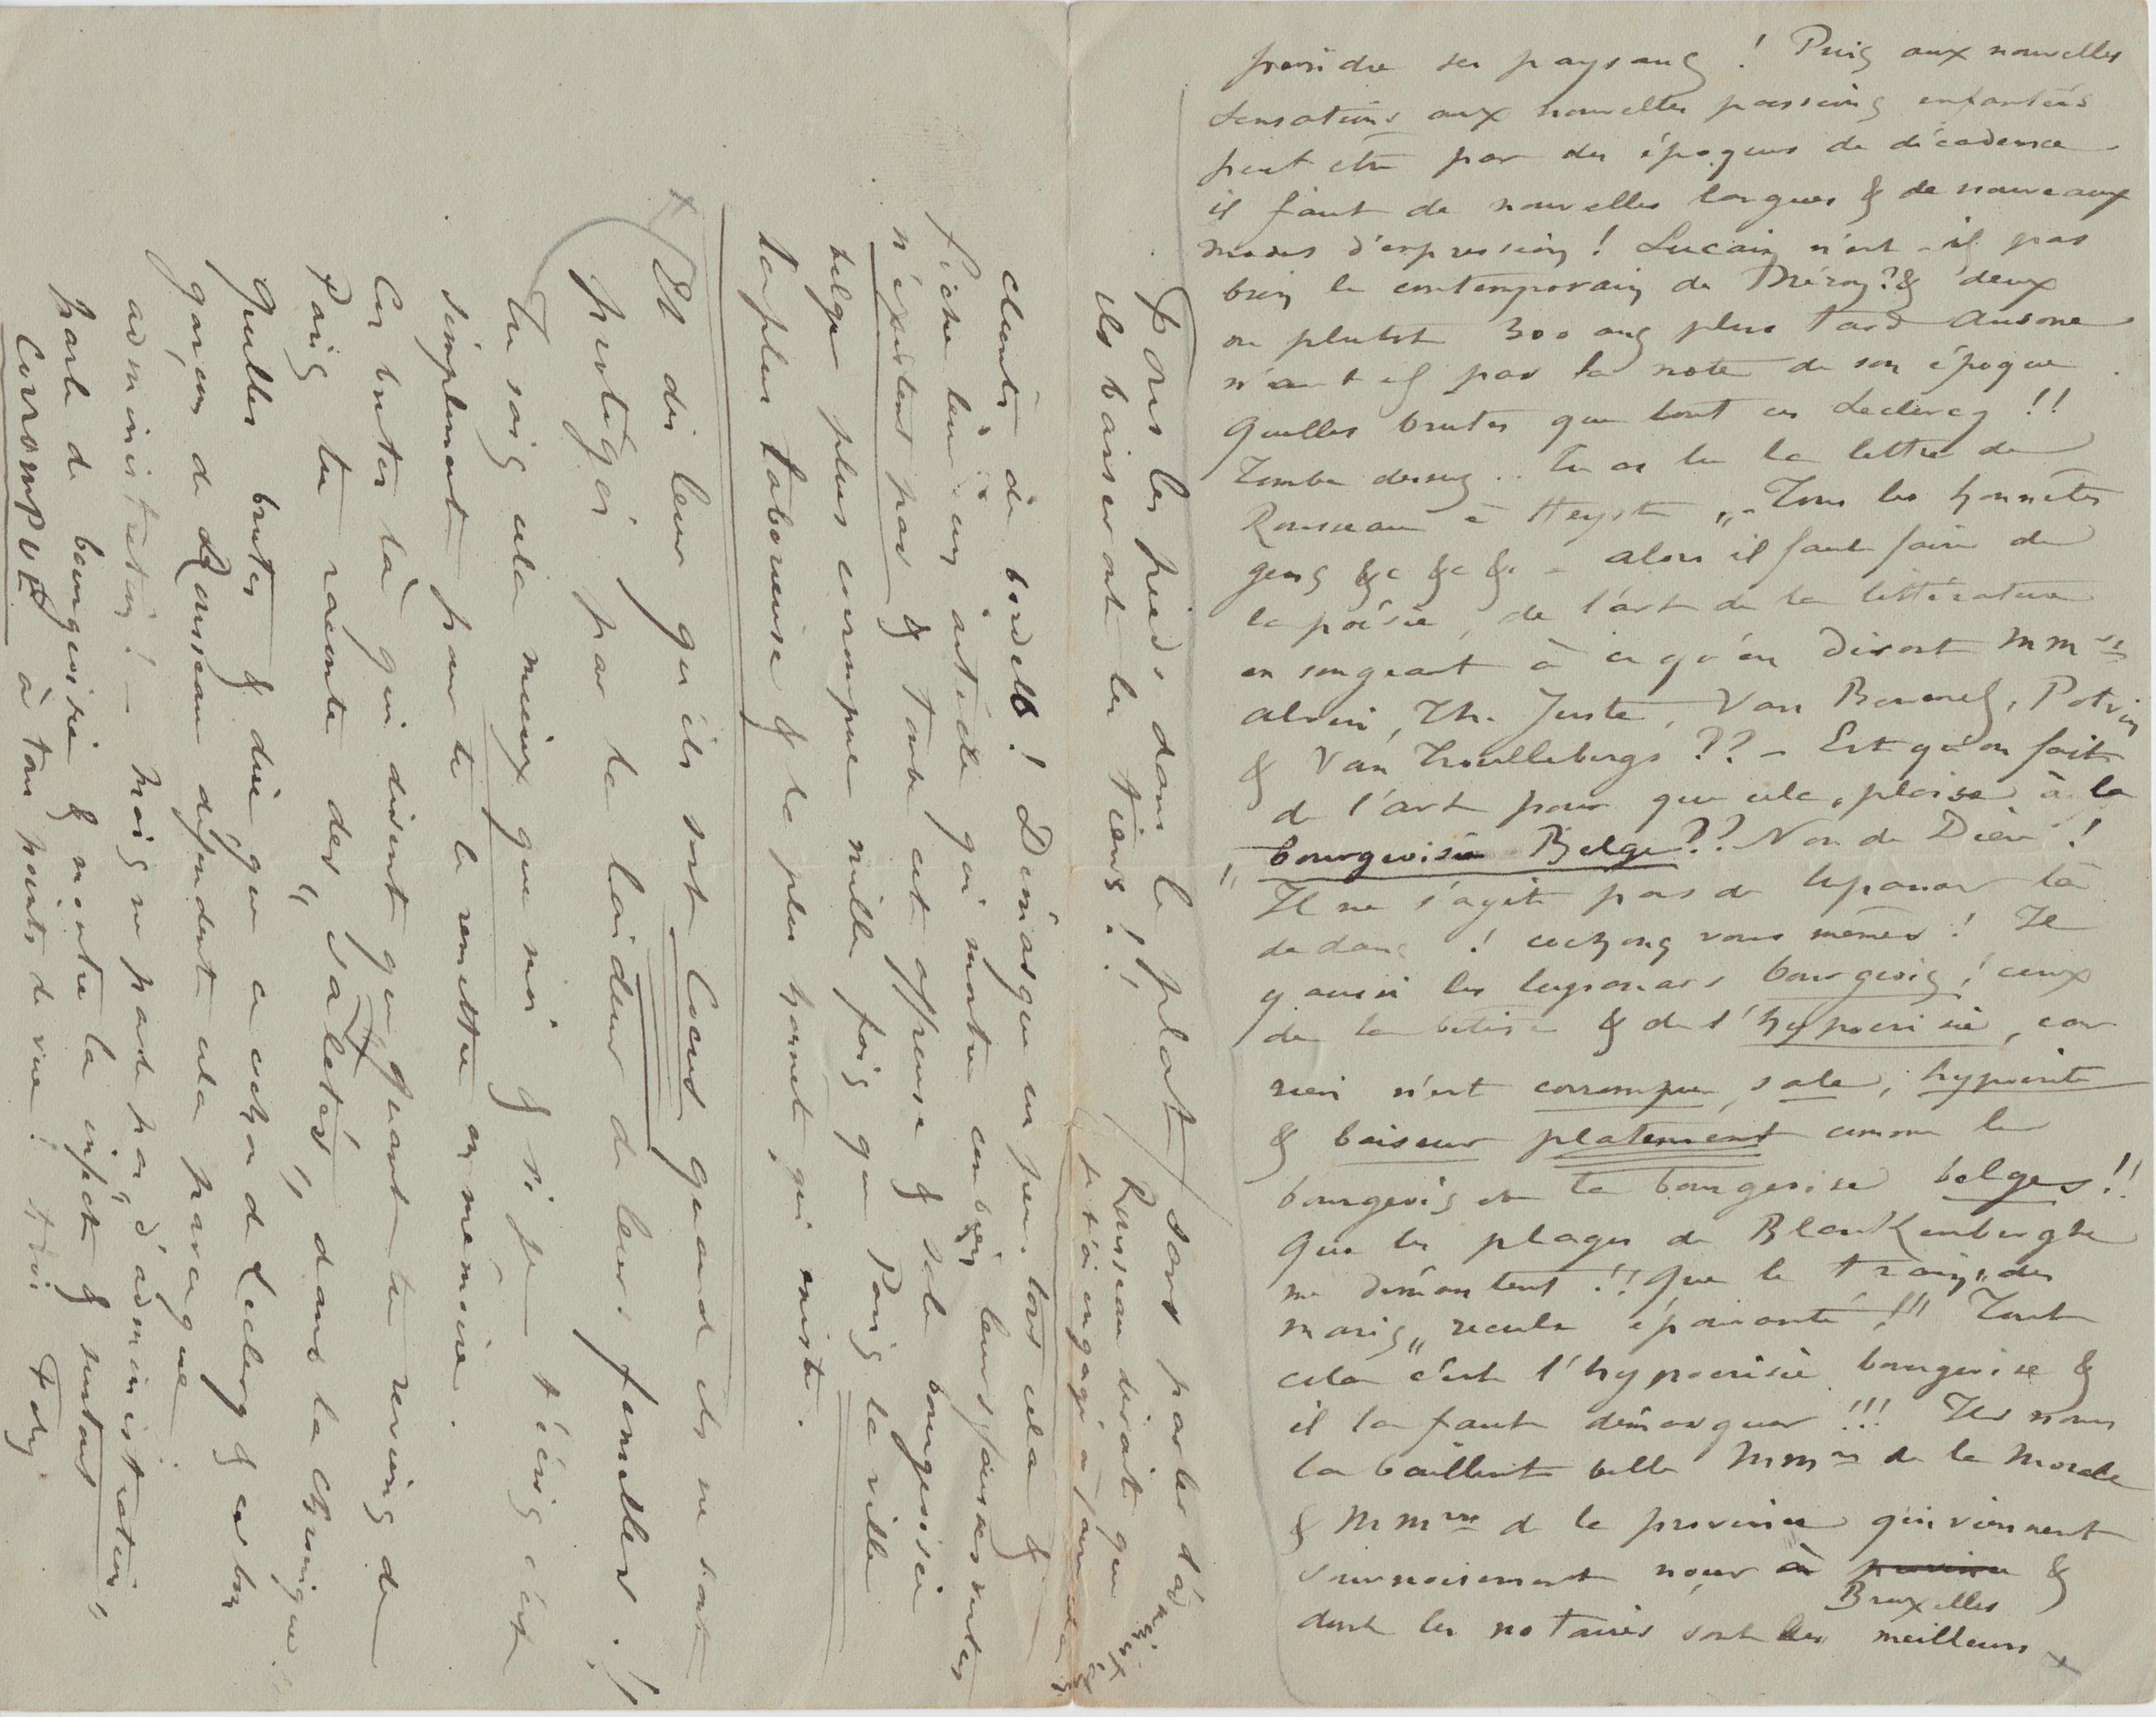 peindre ses paysans ! Puis aux nouvelles
sensations aux nouvelles passions enfantées
peut être par des époques de décadence
il faut de nouvelles langues & de nouveaux
modes d'expression ! Lucain n'est-il pas
bien le contemporain de Néron ? & deux
ou plutot 300 ans plus tard Ausone
n'a-t-il pas la note de son époque.
Quelles brutes que tout ces Leclercq !!
Tombe dessus .. tu as lu la lettre de
Rousseau à Heyst „- Tous les honnêtes
gens &c &c &c - alors il faut faire de
la poésie, de l'art de la littérature
en songeant à ce qu'en diront MMrs
Alvin, Th. Juste, Van Bemmel, Potvin
& Van ?? - Est qu'on fait
de l'art pour que cela plaise à la
„ bourgeoisie Belge ?? Nom de Dieu !
Il ne s'agit pas de lupanar là
dedans ! cochons vous mêmes ! Il
y a aussi les lupanars bourgeois ! ceux
de la bêtise & de l'hypocrisie, car
rien n'est corrompu, sale, hypocrite
& baiseur platement comme le
bourgeois et la bourgeoise belges !!
Que les plages de Blankenberghe
me démentent !! Que le train „des
maris„ recule épouvanté !!! Tout
cela c'est l'hypocrisie bourgeoise &
il la faut démasquer !!! Ils nous
la baillent belle MMrs de la Morale
& MMrs de la province qui viennent
sournoisement nouer à province &
Bruxelles
dont les notaires sont les meilleurs +
clients de bordels ! Démasque un peu tous cela &
fiche leur un article qui montre combien leurs jouissances
n'existent pas & toute cet affreuse & sale bourgeoisie
belge plus corrompue mille fois que Paris la ville
la plus laborieuse & la plus honnete qui existe.
+ Et dis leur qu'ils sont cocus quand ils ne sont
protégés par la laideur de leurs femelles !!
Tu sais cela mieux que moi & si je t'écris c'est
simplement pour te le remettre en mémoire.
Ces brutes là qui disent que quand tu reviens de
Paris tu raconte des „saletés„ dans la chronique !
Quelles brutes & dire que ce cochon de Leclercq & ces bons
garçons de Rousseau défendent cela parceque
administration ! - mais ne parle pas „d'administration„
parle de bourgeoisie & montre la infecte & surtout
CORROMPUE à tous points de vue ! à toi Fély
Fous les pieds dans le plat, sans parler d'administration
ils baiseront les tiens !!
Rousseau dirait que
je t'ai engagé à faire cela